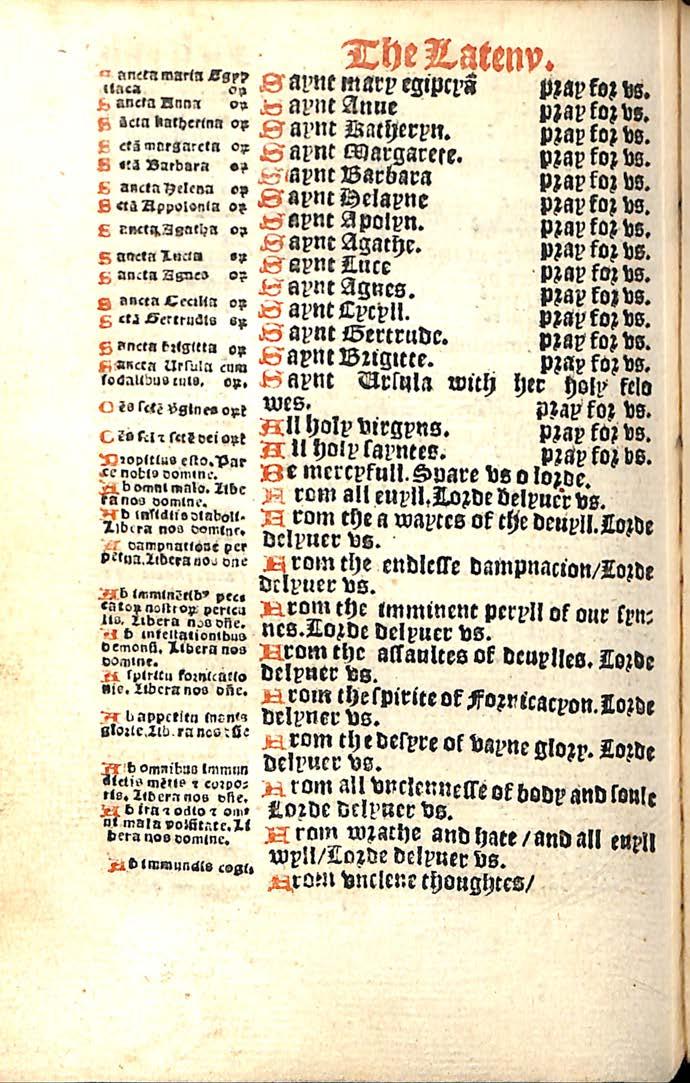 The Lateny.
Sancta maria Egyp
tiaca or
Sancta Anna or
Sācta katherina or
Sctā margareta or
Sctā Barbara or
Sancta Helena or
Sctā Appolonia or
Sancta Agatha or
Sancta Lucia or
Sancta Agnes or
Sancta Cecilia or
Sctā Gertrudis or
Sancta brigitta or
Sancta Ursula cum
sodalibus tuis. or.
Oēs sctē v̄gines ort
Oēs scī ⁊ sctē dei ort
Propitius esto. Par
ce nobis domine.
Ab omni malo. Libe
ra nos domine.
Ab insidiis diaboli.
Libera nos domine.
A dampnatione per
petua. Libera nos dne
Ab imminētibꝰ pecc
catoꝝ nostroꝝ pericu
lis. Libera nos dn̄e.
Ab infestationibus
demonū. Libera nos
domine.
A spiritu fornicatio
nis. Libera nos dn̄e.
Ab appetitu inanis
glorie. Lib.ra nos dn̄e
Ab omnibus immun
diciis mētis ⁊ corpo-
ris. Libera nos dn̄e.
Ab ira ⁊ odio ⁊ omni
mala volūtate. Li
bera nos domine.
Ab immundis cogi-
Saynt mary egipcyā pray for vs.
Saynt Anne pray for vs.
Saynt Katheryn. pray for vs.
Saynt Margarete. pray for vs.
Saynt Barbara pray for vs.
Saynt Helayne pray for vs.
Saynt Apolyn. pray for vs.
Saynt Agathe. pray for vs.
Saynt Luce pray for vs.
Saynt Agnes. pray for vs.
Saynt Cycyll. pray for vs.
Saynt Gertrude. pray for vs.
Saynt Brigitte. pray for vs.
Saynt Ursula with her holy felo
wes. pray for vs.
All holy virgyns. pray for vs.
All holy sayntes. pray for vs.
Be mercyfull. Spare vs o lorde.
From all euyll. Lorde delyuer vs.
From the a waytes of the deuyll. Lorde
delyuer vs.
From the endlesse dampnacion/Lorde
delyuer vs.
From the imminent peryll of our syn-
nes. Lorde delyuer vs.
From the assaultes of deuylles. Lorde
delyuer vs.
From the spirite of Fornicacyon. Lorde
delyuer vs.
From the desyre of vayne glory. Lorde
delyuer vs.
From all vnclennesse of body and soule
Lorde delyuer vs.
From wrathe and hate/and all euyll
wyll/Lorde delyuer vs.
From vnclene thoughtes/